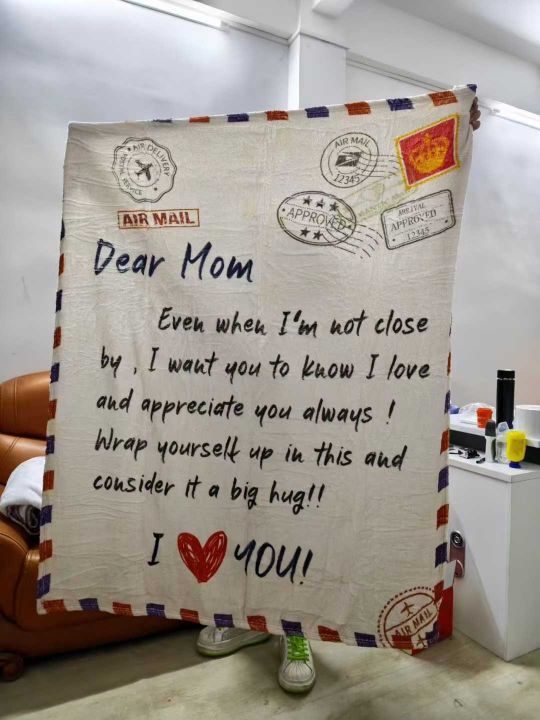 AIR DELIVERY
POSTAL SERVICE
AIR MAIL
AIR MAIL
12345
APPROVED
ARRIVAL
APPROVED
12345
Dear Mom
Even when I'm not close
by , I want you to know I love
and appreciate you always !
Wrap yourself up in this and
consider it a big hug!!
I ❤ YOU!
AIR MAIL